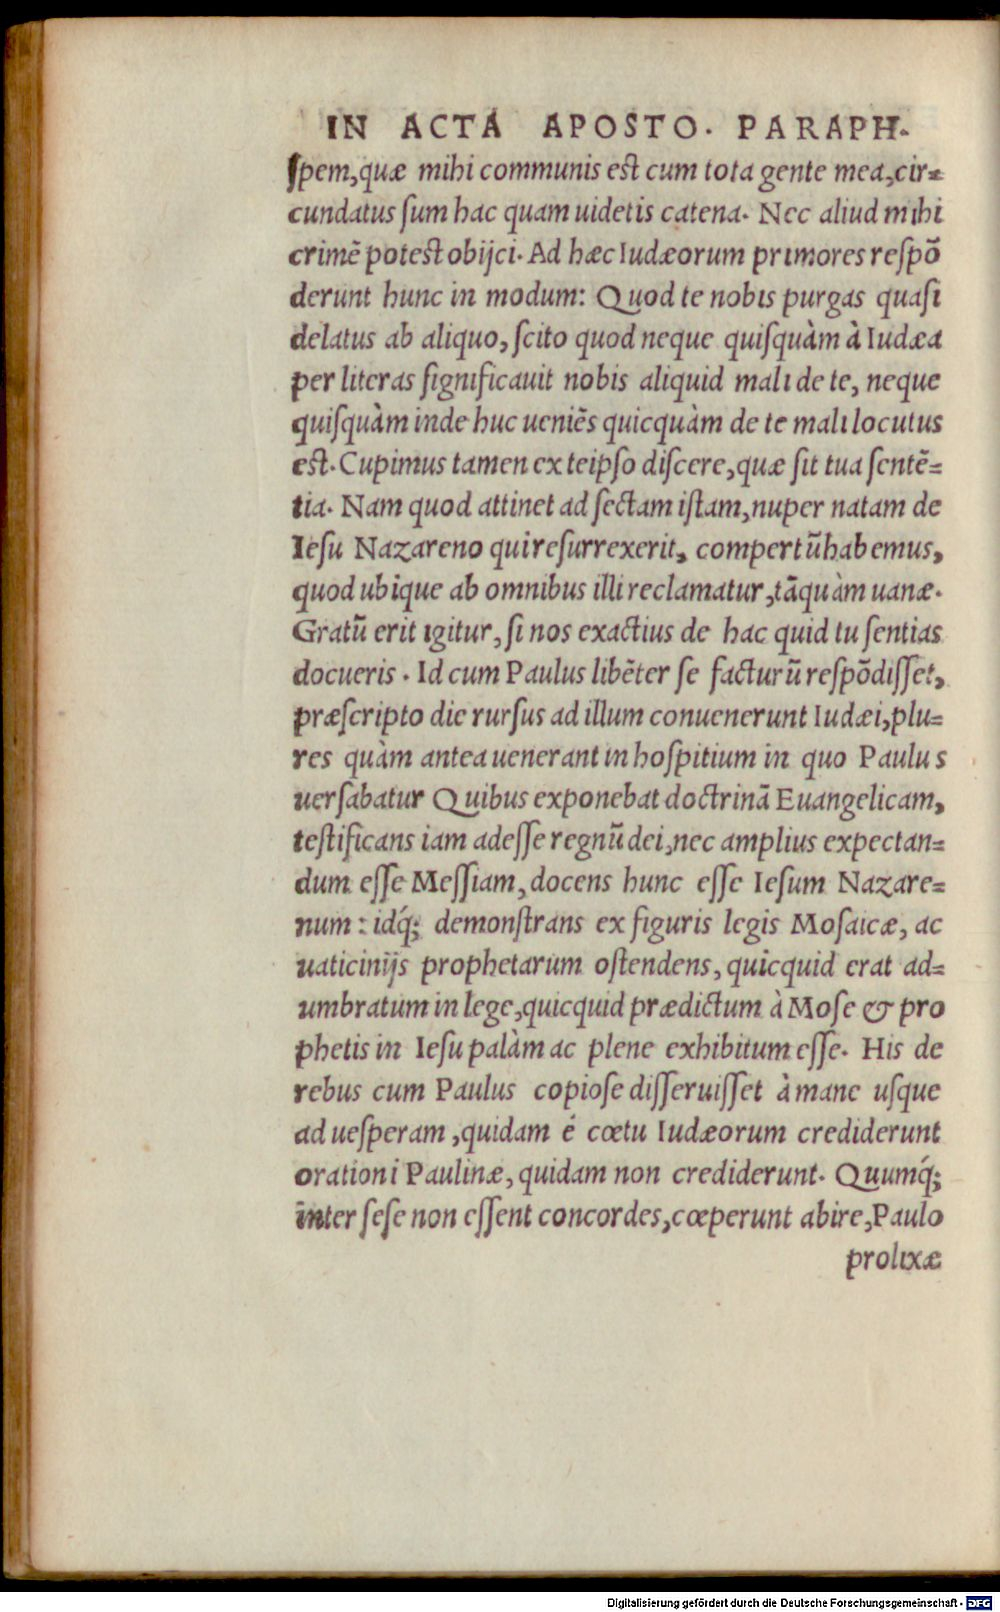 IN ACTA APOSTO. PARAPH.
ſpem,quæ mihi communis est cum tota gente mea,cir-
cundatus ſum hac quam uidetis catena. Nec aliud mihi
crimẽ potest obijci. Ad hæc Iudæorum primores reſpõ
derunt hunc in modum: Quod te nobis purgas quaſi
delatus ab aliquo, ſcito quod neque quiſquàm à Iudæa
per literas ſignificauit nobis aliquid mali de te, neque
quiſquàm inde huc ueniẽs quicquàm de te mali locutus
est. Cupimus tamen ex teipſo diſcere,quæ ſit tua ſentẽ=
tia. Nam quod attinet ad ſectam iſtam,nuper natam de
Ieſu Nazareno qui reſurrexerit, compertũ habemus,
quod ubique ab omnibus illi reclamatur,tãquàm uanæ.
Gratũ erit igitur, ſi nos exactius de hac quid tu ſentias
docueris. Id cum Paulus libẽter ſe facturũ reſpõdiſſet,
præſcripto die rurſus ad illum conuenerunt Iudæi,plu=
res quàm antea uenerant in hoſpitium in quo Paulus
uerſabatur Quibus exponebat doctrinã Euangelicam,
teſtificans iam adeſſe regnũ dei,nec amplius expectan=
dum eſſe Meſſiam, docens hunc eſſe Ieſum Nazare=
num: idq́; demonſtrans ex figuris legis Moſaicæ, ac
uaticinijs prophetarum oſtendens, quicquid erat ad=
umbratum in lege,quicquid prædictum à Moſe & pro
phetis in Ieſu palàm ac plene exhibitum eſſe. His de
rebus cum Paulus copioſe diſſeruiſſet à mane uſque
ad ueſperam,quidam é cœtu Iudæorum crediderunt
orationi Paulinæ, quidam non crediderunt. Quumq́;
inter ſeſe non eſſent concordes,cœperunt abire,Paulo
prolixæ
Digitalisierung gefördert durch die Deutsche Forschungsgemeinschaft - DFG